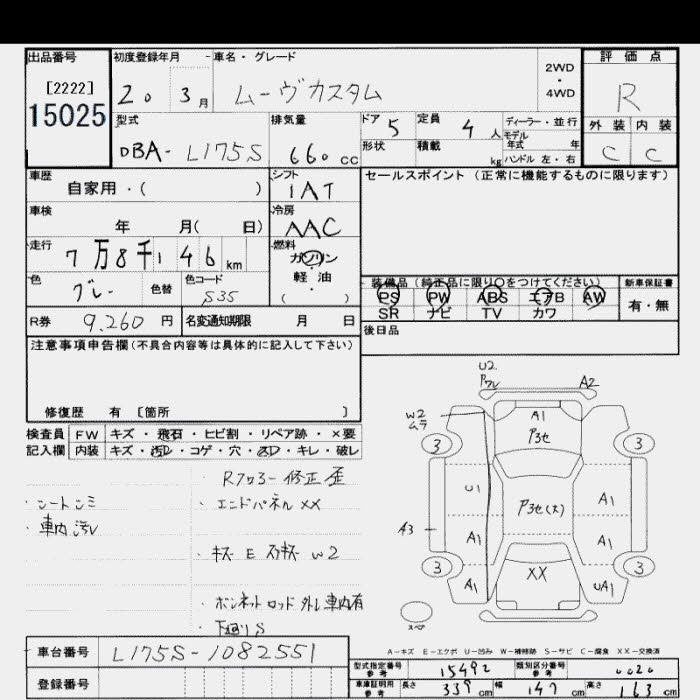 出品番号 初度登録年月 車名・グレード 2WD・4WD 評価点
[2222]
15025
20 3月 ムーヴカスタム R
型式 排気量 ドア 5 定員 4人 ディーラー・並行 外装 内装
DBA-L175S 660cc 形状 積載 kg モデル年式 年 ハンドル 左・右 C C
車歴 シフト セールスポイント (正常に機能するものに限ります)
自家用・( ) IAT
車検 冷房
年 月( 日) AAC
走行 燃料
7万8千146km ガソリン・軽油
色 色替 色コード ( ) 装備品 (純正品に限り○をつけてください) 新車保証書
グレー S35 PS PW ABS エアB AW 有・無
SR ナビ TV カワ
R券 9,260円 名変通知期限 月 日 後日品
注意事項申告欄(不具合内容等は具体的に記入して下さい)
修復歴 有 [箇所 ]
検査員記入欄 FW キズ・飛石・ヒビ割・リペア跡・×要
内装 キズ・汚レ・コゲ・穴・スレ・キレ・破レ
Rフロアー修正歪
・シートシミ ・エンドパネルXX
・車内汚レ
・キズ E スリキズ W2
・ボンネットロッド外レ車内有
・下廻りS
U2
アレ A2
W2
ムラ A1
アセ
3 3
U1 アセ(大) A1
A3 A1 A1
3 XX 3
A1 UA1
スペア
A-キズ E-エクボ U-凹み W-補修跡 S-サビ C-腐食 XX-交換済
車台番号 L175S-1082551
登録番号
型式指定番号 参考 15492 類別区分番号 参考
車庫証明用 参考 長さ 339cm 幅 147cm 高さ 163cm